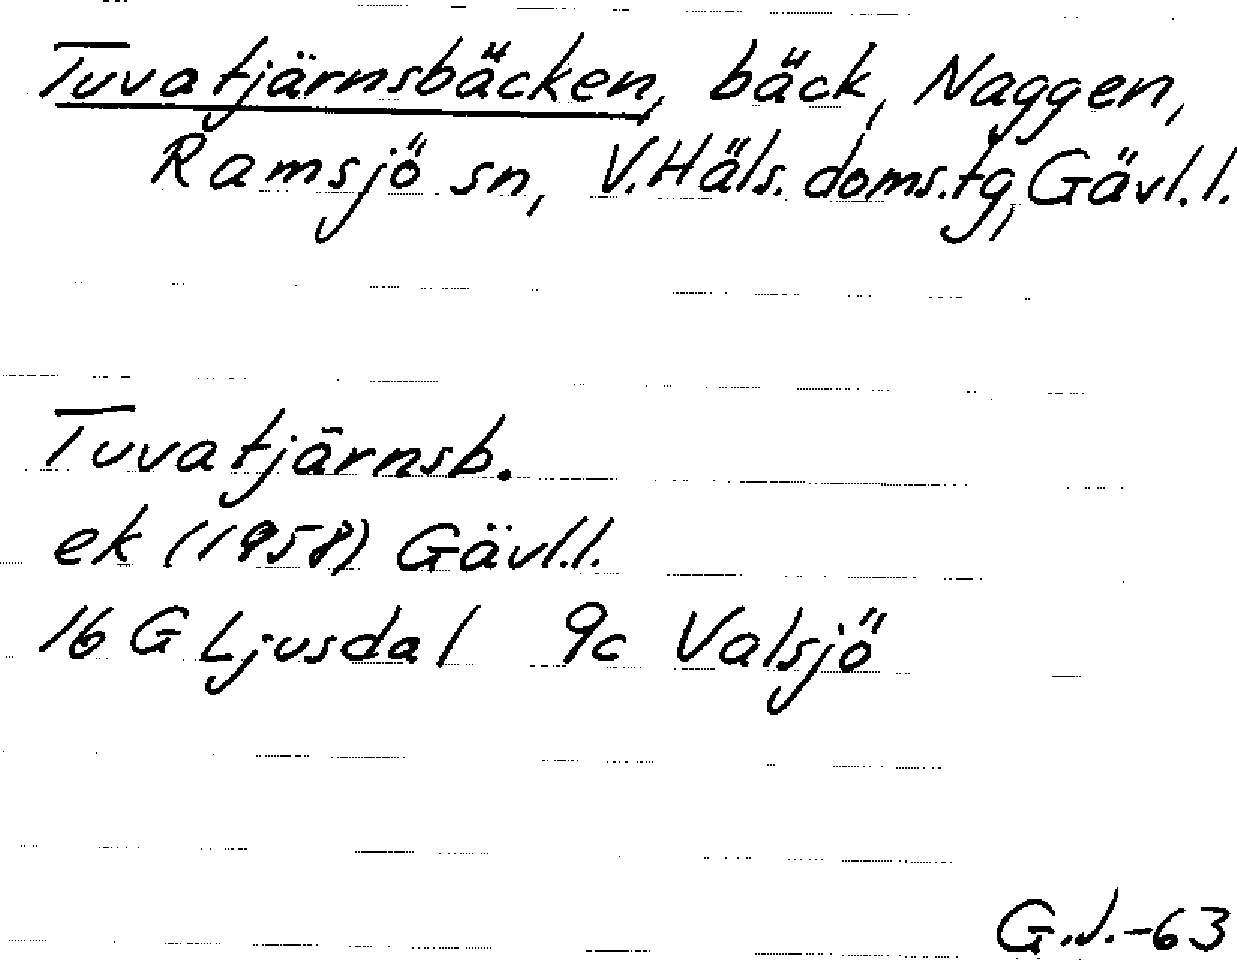 Tuvatjärnsbäcken, bäck, Naggen,
Ramsjö sn, V.Häls.doms.tg, Gävl.l.
Tuvatjärnsb.
ek (1958) Gävl.l.
16 G Ljusdal 9c Valsjö
G.J.-63